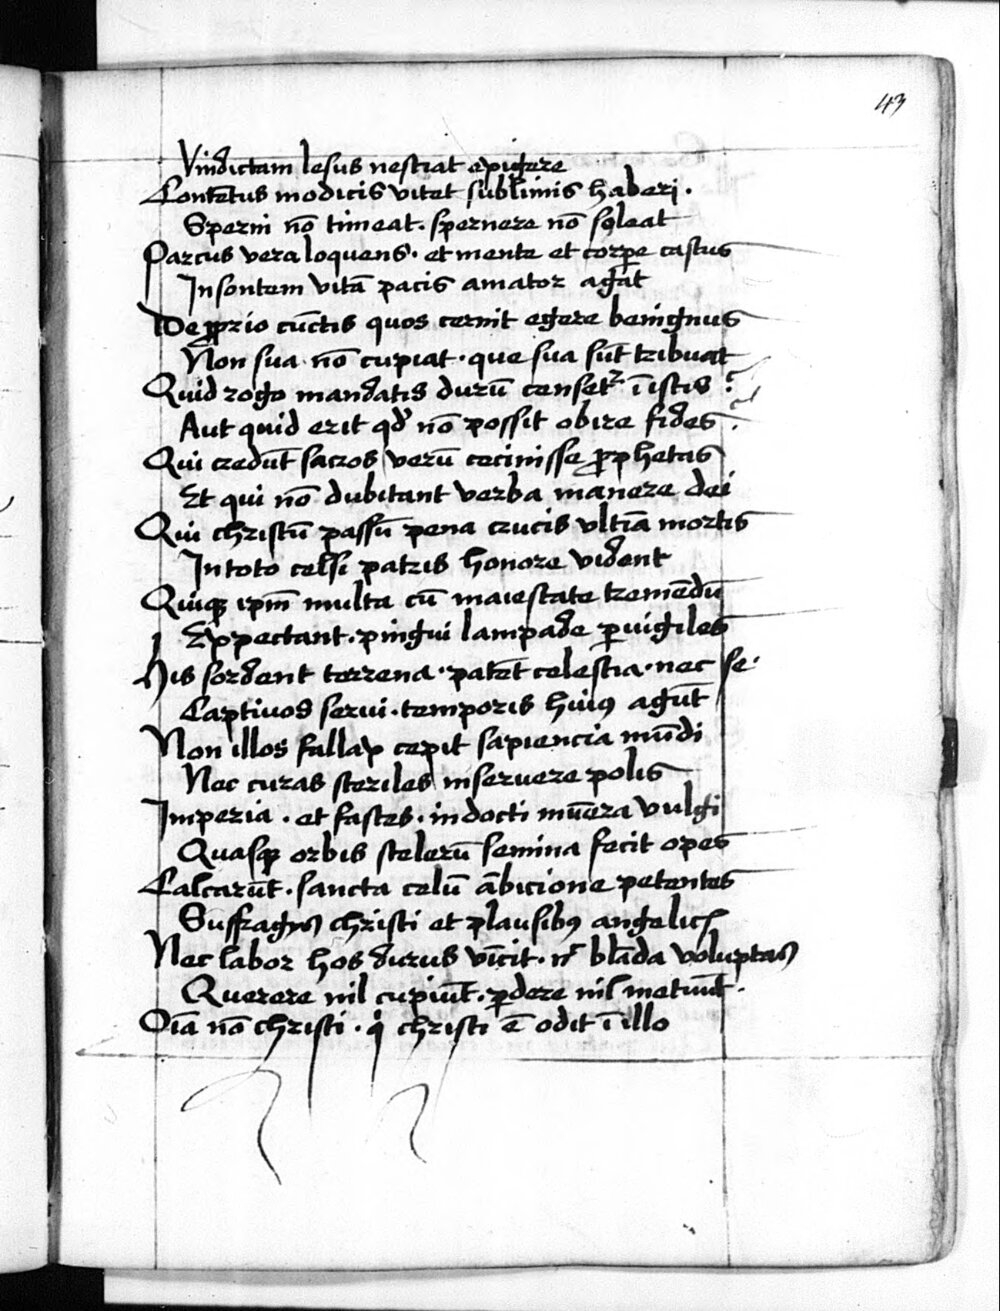 43
Vindictam lesus nesciat exigere
Contẽtus modicis vitet sublimis haberi ·
Sperni nõ timeat · spernere nõ soleat
Parcus vera loquens · et mente et corpe castus
Insontem vitã pacis amator agat
De ꝓprio cũctis quos cernit egere benignus
Non sua nõ cupiat · que sua sũt tribuat
Quid rogo mandatis durũ censetr ĩ istis ?
Aut quid erit qd̛ nõ possit obire fides ?
Qui credũt sacros verũ cecinisse ꝓphetas
Et qui nõ dubitant verba manere dei
Qui christũ passũ pena crucis vltĩa mortis
In toto celsi patris honore vident
Quiqꝫ ipm̃ multa cũ maiestate tremẽdũ
Expectant · pingui lampade ꝑuigiles
His sordent terrena · patẽt celestia · nec se ·
Captiuos serui · temporis huiꝰ agũt
Non illos fallax cepit sapiencia mũdi
Nec curas steriles inseruere polis
Imperia · et fastes · indocti mũera vulgi
Quasqꝫ orbis scelerũ semina fecit opes
Calcarũt · sancta celũ ãbicione petentes
Suffragijs christi et plausibꝰ angelicis
Nec labor hos durus vĩcit · nc̃ blãda voluptas
Querere nil cupiũt · ꝑdere nil metuũt ·
Oĩa nõ christi · qi christi ẽ odit ĩ illo